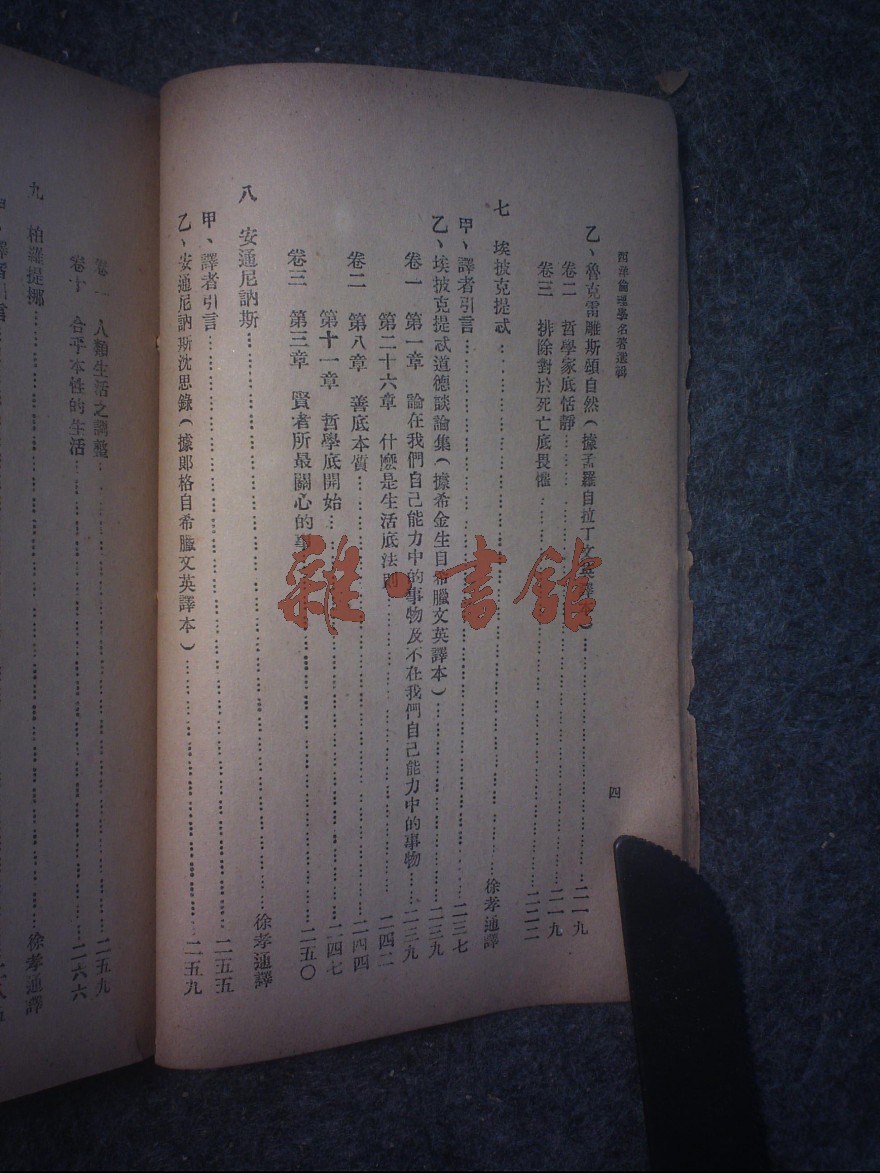 西洋倫理學名著選輯
四
乙、魯克雷雕斯頌自然(據孟羅自拉丁文英譯……二一九
卷二 哲學家底恬靜……二一九
卷三 排除對於死亡底畏懼……二二二
七 埃披克提忒……徐孝通譯
甲、譯者引言……二三七
乙、埃披克提忒道德談論集(據希金生自希臘文英譯本)……二三九
卷一 第一章 論在我們自己能力中的事物及不在我們自己能力中的事物……二三九
第二十六章 什麼是生活底法則……二四二
卷二 第八章 善底本質……二四四
第十一章 哲學底開始……二四七
卷三 第三章 賢者所最關心的事……二五〇
八 安通尼訥斯……徐孝通譯
甲、譯者引言……二五五
乙、安通尼訥斯沈思錄(據郎格自希臘文英譯本)……二五九
卷一 人類生活之調整……二五九
卷十 合乎本性的生活……二六六
九 柏羅提挪……徐孝通譯
甲、譯者引言
雜·書館